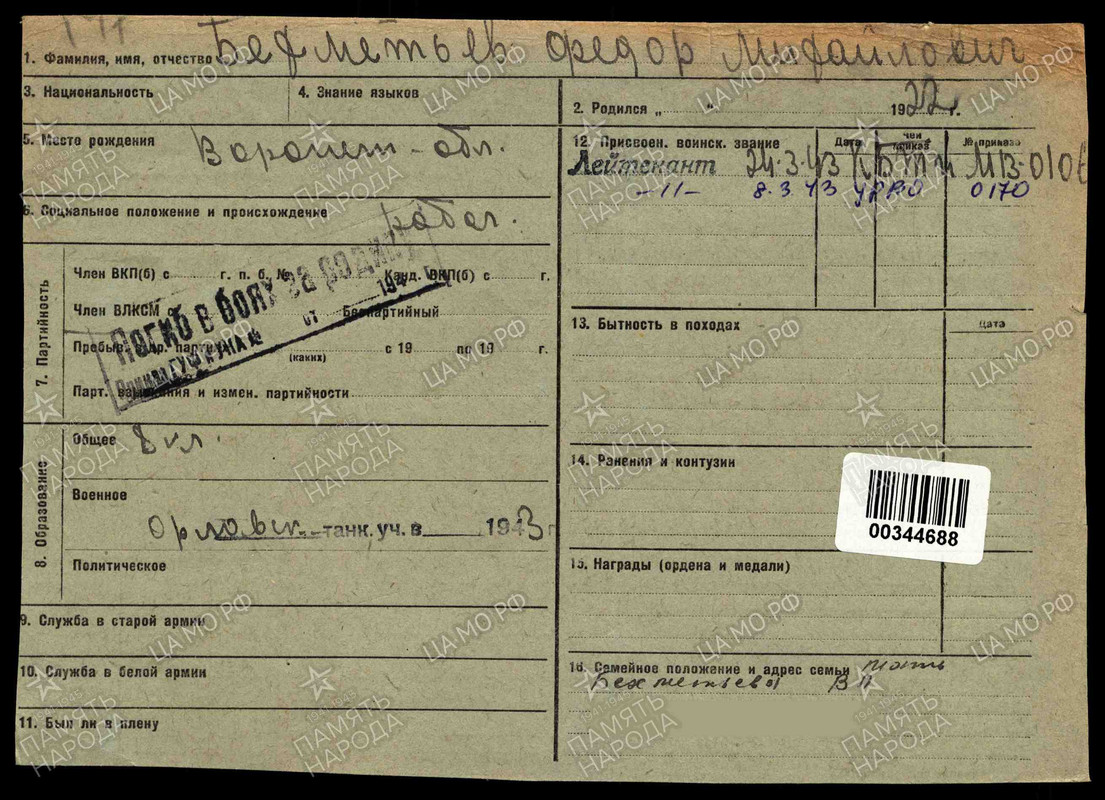 1. Фамилия, имя, отчество Бехметьев Федор Михайлович
3. Национальность
4. Знание языков
2. Родился „ “ 1922 г.
5. Место рождения Воронеж - обл.
6. Социальное положение и происхождение рабоч.
7. Партийность
Член ВКП(б) с г. п. б. № Канд. ВКП(б) с г.
Член ВЛКСМ с Беспартийный
Пребыв. в др. партиях с 19 по 19 г.
(каких)
Парт. взыскания и измен. партийности
Погиб в боях за родину
Приказ ГУФ и УКА № от 194
8. Образование
Общее 8 кл.
Военное
Орловск. танк. уч. в 1943 г
Политическое
9. Служба в старой армии
10. Служба в белой армии
11. Был ли в плену
12. Присвоен. воинск. звание Дата чей приказ № приказа
Лейтенант 24.3.43 КБТМ МВ-0106
-11- 8.3.43 УРВО 0170
13. Бытность в походах Дата
14. Ранения и контузии
00344688
15. Награды (ордена и медали)
16. Семейное положение и адрес семьи мать
Бехметьева В П
ПАМЯТЬ НАРОДА
1941-1945
ЦА МО РФ